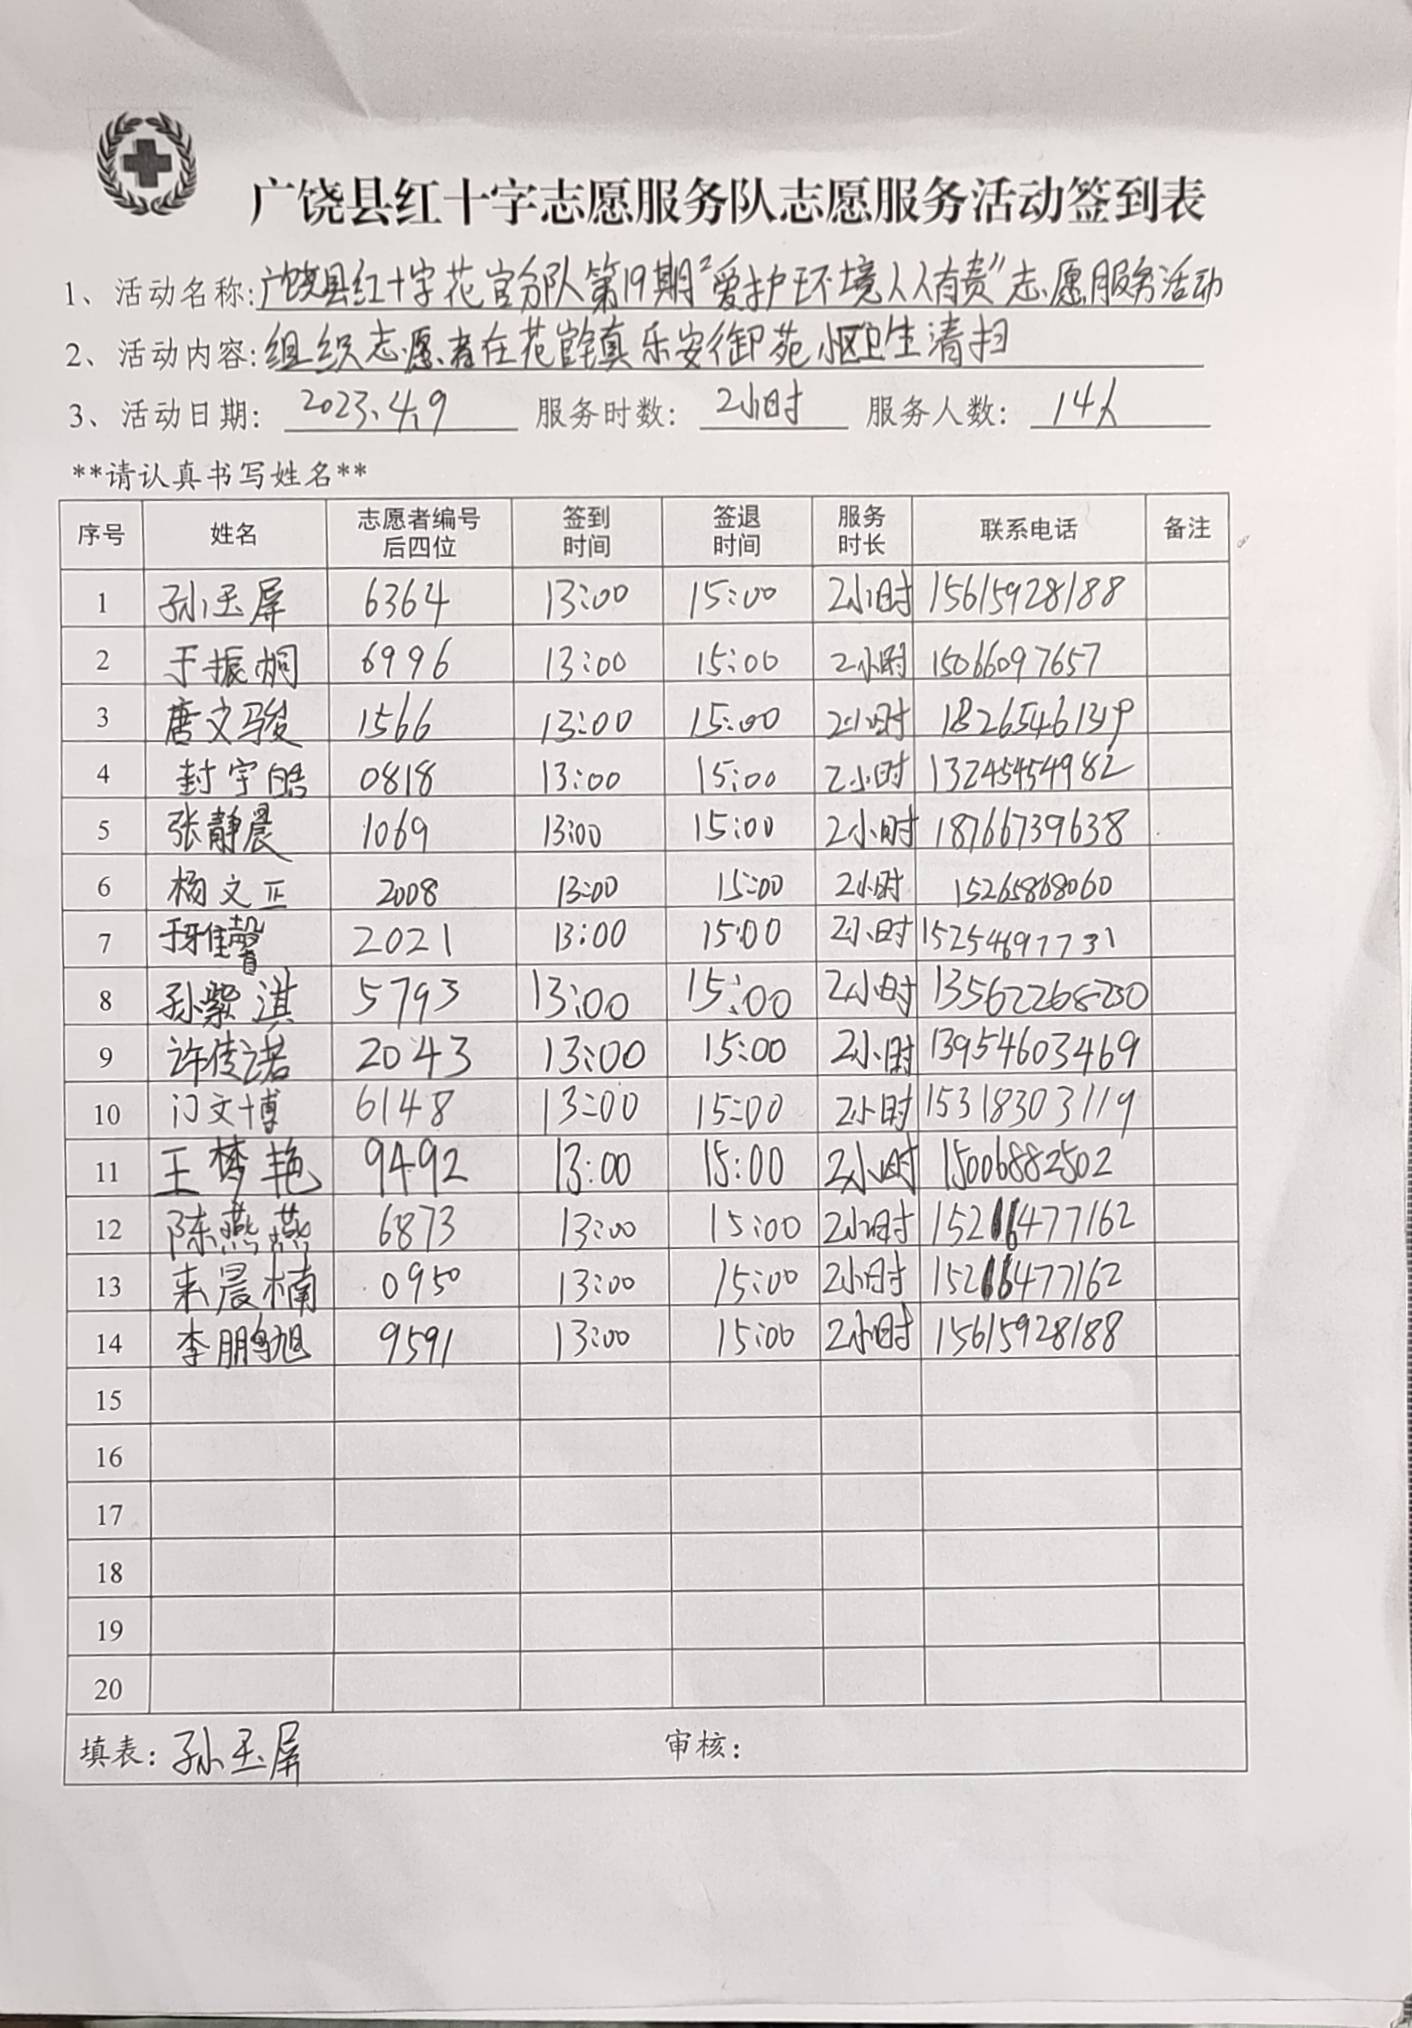 广饶县红十字志愿服务队志愿服务活动签到表
1、活动名称:广饶县红十字花官分队第19期"爱护环境人人有责"志愿服务活动
2、活动内容:组织志愿者在花官镇乐安御苑小区卫生清扫
3、活动日期: 2023.4.9 服务时数: 2小时 服务人数: 14人
**请认真书写姓名**
序号 姓名 志愿者编号后四位 签到时间 签退时间 服务时长 联系电话 备注
1 孙玉屏 6364 13:00 15:00 2小时 15615928188
2 于振桐 6996 13:00 15:00 2小时 15066097657
3 唐文骏 1566 13:00 15:00 2小时
4 封宇皓 0818 13:00 15:00 2小时 13245454982
5 张静晨 1069 13:00 15:00 2小时 18766739638
6 杨文正 2008 13:00 15:00 2小时 15265868060
7 于雅馨 2021 13:00 15:00 2小时 15254697731
8 孙繁淇 5793 13:00 15:00 2小时 13562268250
9 许传诺 2043 13:00 15:00 2小时 13954603469
10 门文博 6148 13:00 15:00 2小时 15318303119
11 王梦艳 9492 13:00 15:00 2小时 15006882502
12 陈燕燕 6873 13:00 15:00 2小时 15216477162
13 来晨楠 0950 13:00 15:00 2小时 15216477162
14 李鹏旭 9591 13:00 15:00 2小时 15615928188
15
16
17
18
19
20
填表: 孙玉屏 审核: